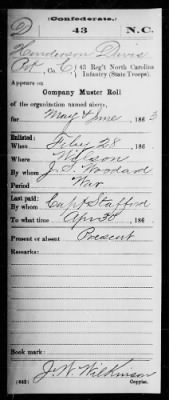 (Confederate.)
D 43 N.C.
Henderson Davis
Pvt, Co. C, 43 Reg't North Carolina
Infantry (State Troops).
Appears on
Company Muster Roll
of the organization named above,
for May & June, 1863
Enlisted:
When Feby 28, 186
Where Wilson
By whom J. S. Woodard
Period War
Last paid:
By whom Capt Stafford
To what time Apr 30, 186
Present or absent Present
Remarks:
Book mark:
J. W. Wilkinson
(642) Copyist.